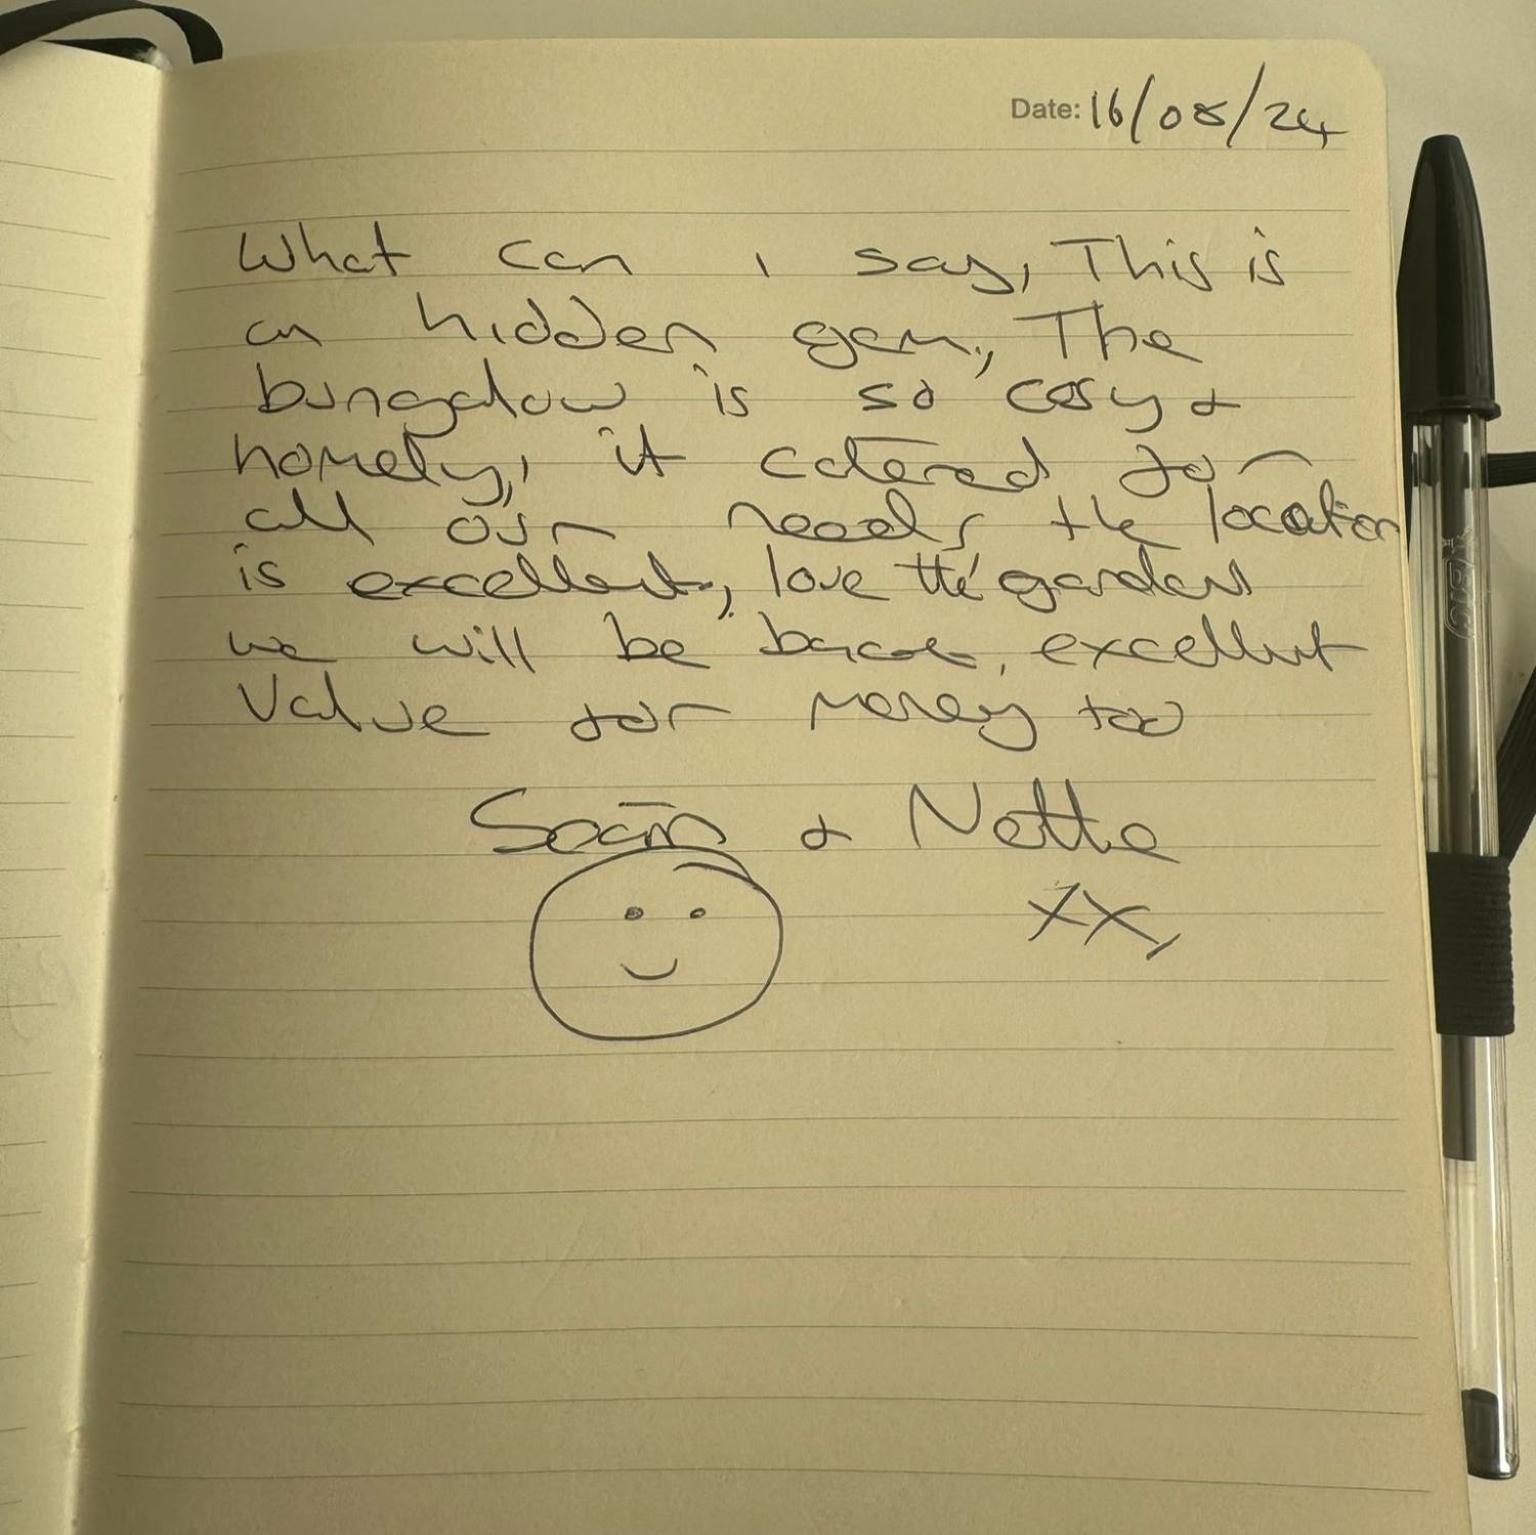 Date: 16/08/24
What can I say, This is
an hidden gem, The
bungalow is so cosy &
homely, it catered for
all our needs the location
is excellent, love the garden
we will be back, excellent
Value for money too
Seán & Nette
XX,
BIC